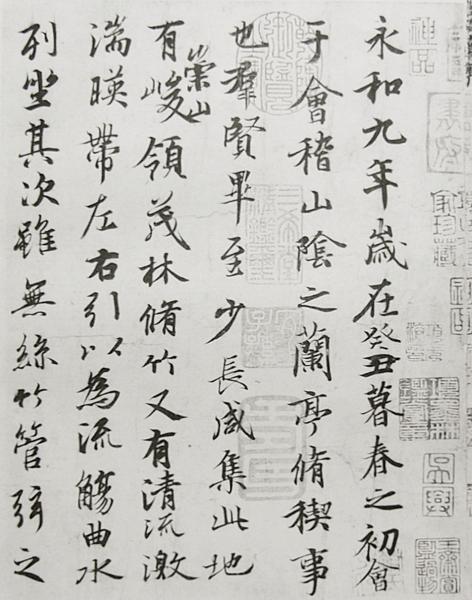 神品
永和九年歲在癸丑暮春之初會
于會稽山陰之蘭亭脩稧事
也群賢畢至少長咸集此地
有崇山峻領茂林脩竹又有清流激
湍暎帶左右引以為流觴曲水
列坐其次雖無絲竹管弦之